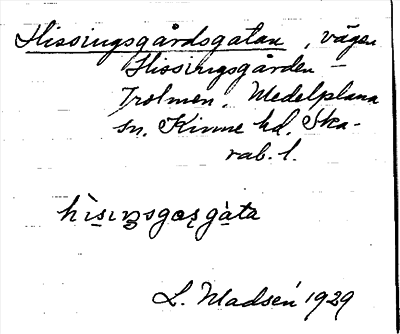 Hissingsgårdsgatan, vägen
Hissingsgården –
Trolmen. Medelplana
sn. Kinne hd. Ska-
rab. l.
L. Madsén 1929